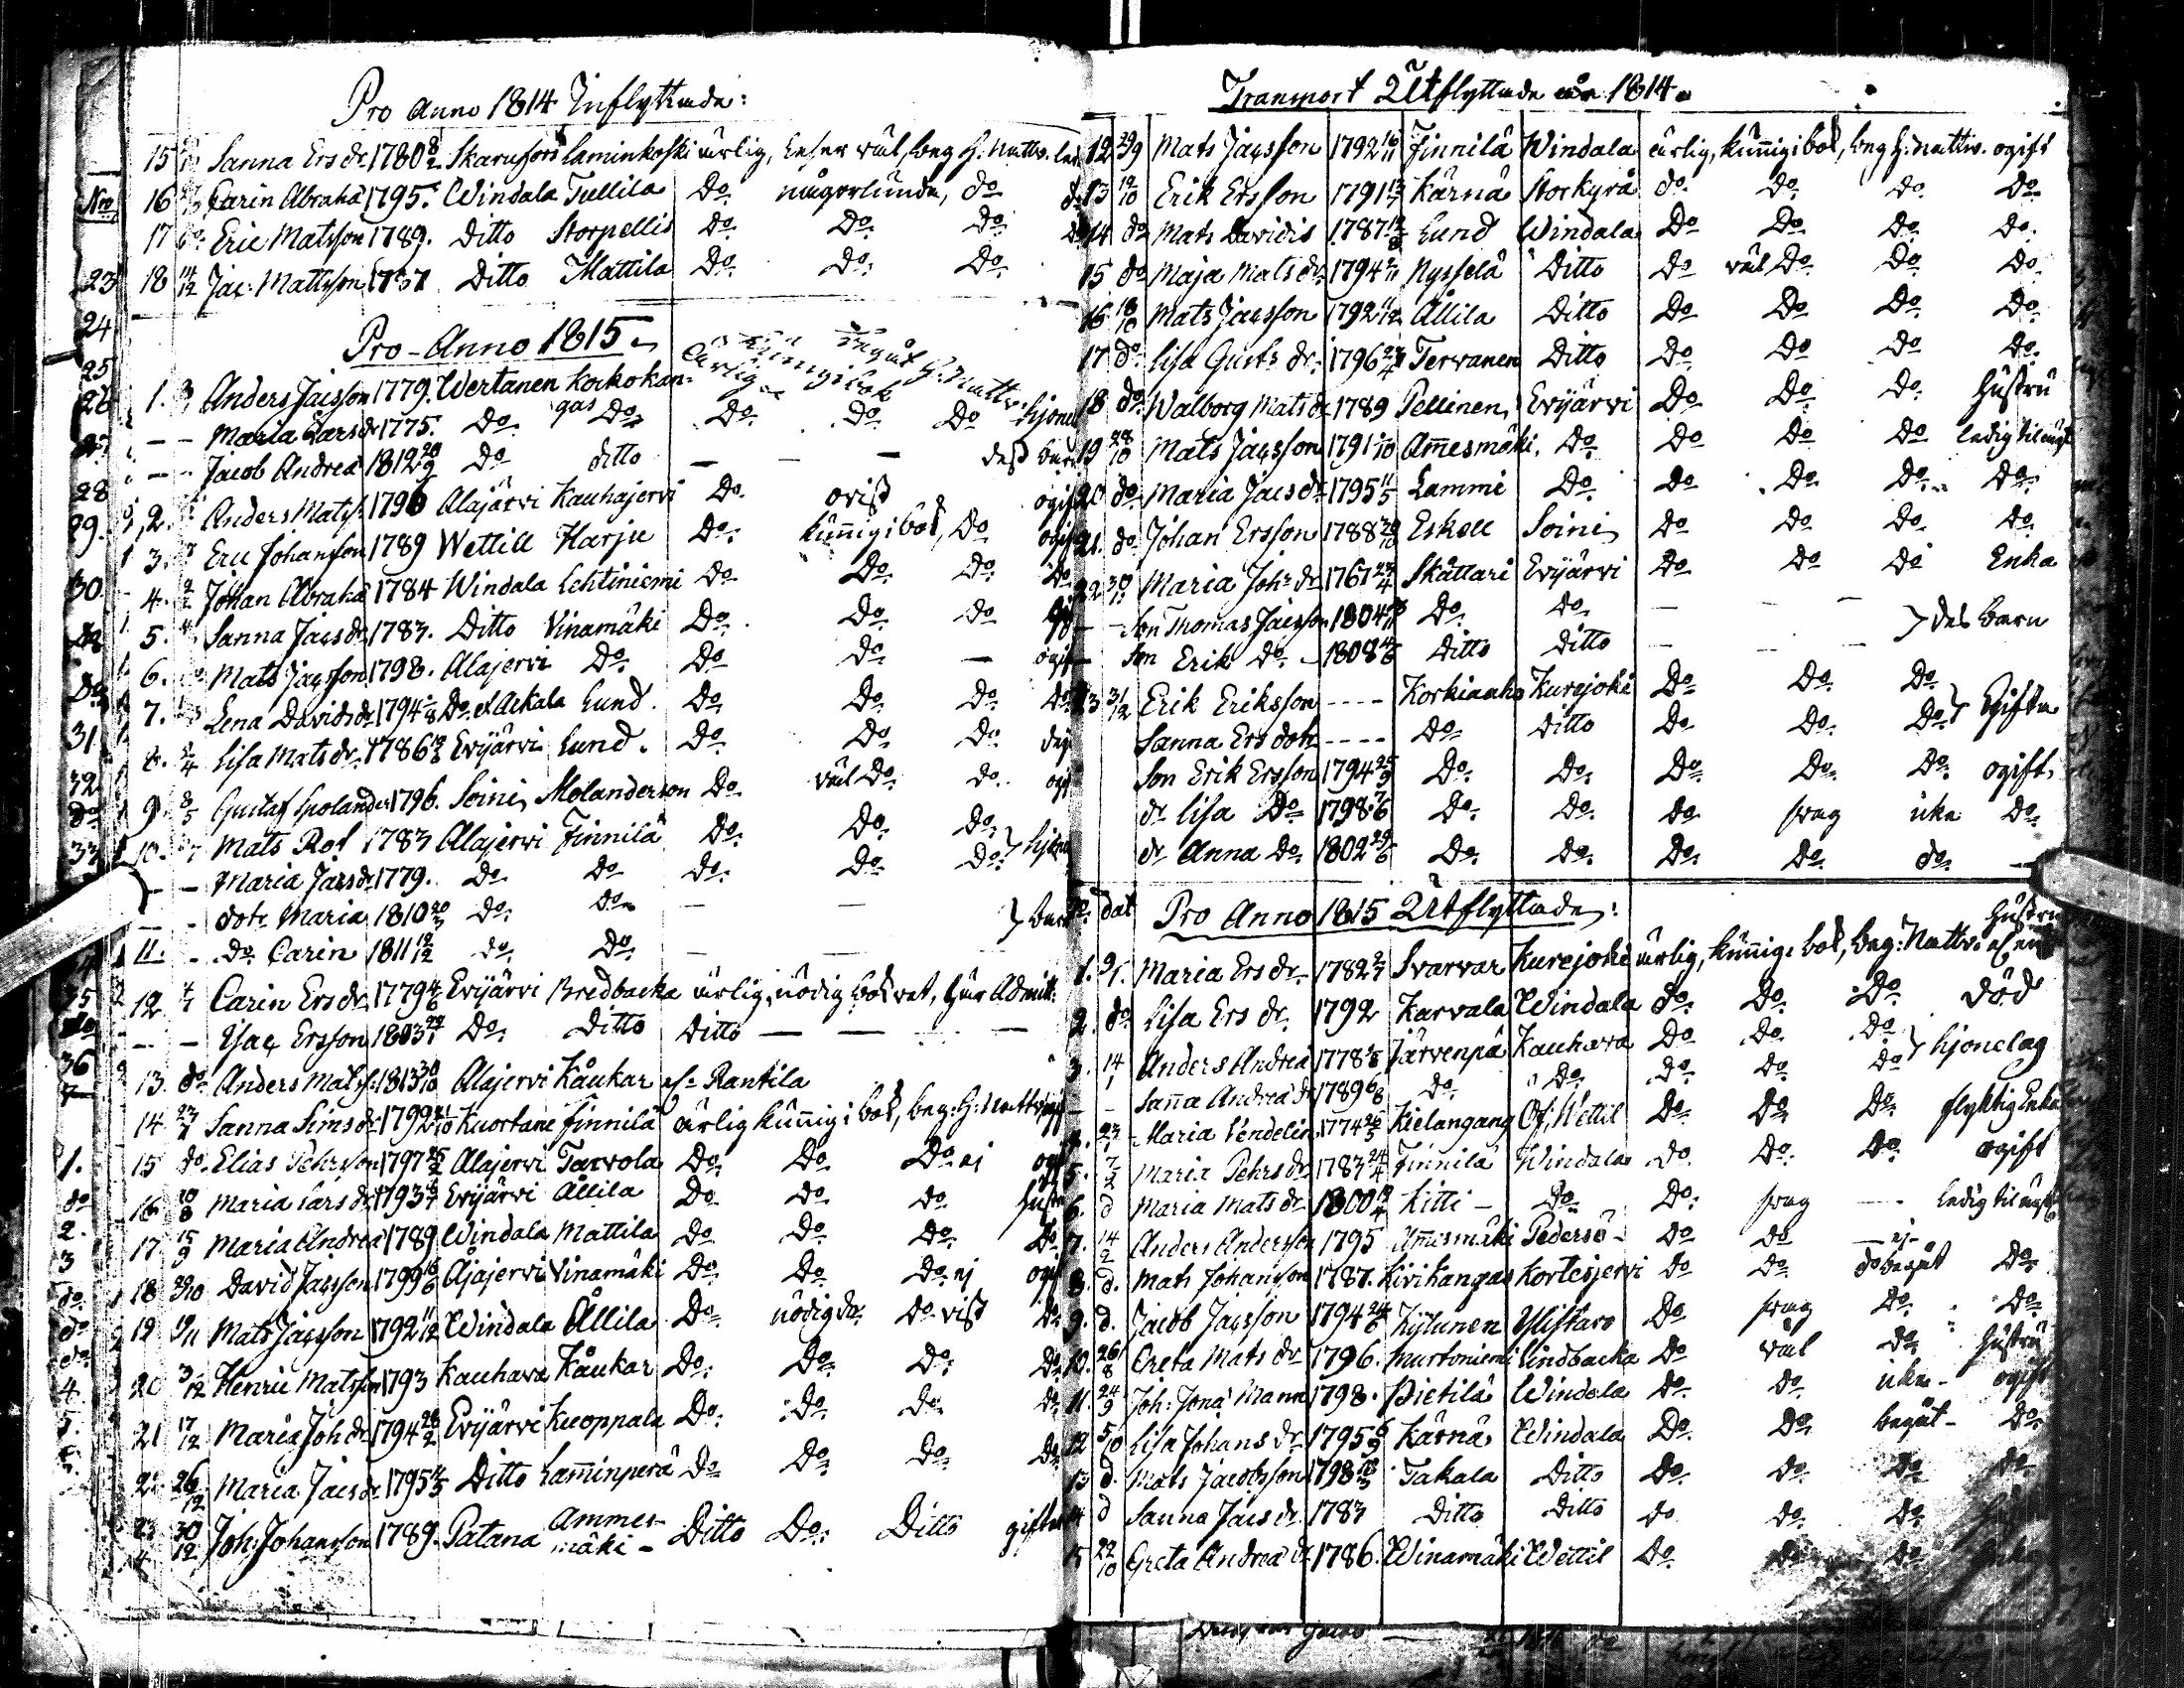 Pro Anno 1814 Inflyttade:
15 Sanna Ersdr. 1780 8/2 Skarufors Laminkoski ärlig, Läser väl, beg H: Nattv.
16 Carin Abrahā 1795. Windala Tullila Do någorlunda, do
17 do Eric Matsson 1789. Ditto Storpellis Do Do Do
18 14/12 Jac: Mattsson 1787 Ditto Mattila Do Do Do
Pro Anno 1815
1. Anders Jacsson 1779. Wertanen Kockokangas ärlig kunnig i bok begåt H: Nattv. hjonel
– – Maria Larsdr 1775. Do Do Do Do Do
– – Jacob Andreā 1812 20/9 Do ditto – – – dess barn
2. Anders Mats. 1796 Alajärvi Kauhajervi Do ovist ogift
3. Eric Johansson 1789 Wettill Harju Do kunnig i bok, Do ogift
4. Johan Abrahā 1784 Windala Lehtiniemi Do Do Do Do
5. Sanna Jacsdr. 1783. Ditto Vinamäki Do Do Do
6. Mats Jacsson 1798. Alajervi Do Do Do – ogift
7. Lena Davidsdr 1794 Do Ackala Lund. Do Do Do Do
8. Lisa Matsdr. 1786 Evijärvi Lund. Do Do Do
9. 8/5 Gustaf Spolander 1796. Soini Molanderson Do väl Do do ogift
10. Mats Rof 1783 Alajervi Finnilä Do Do Do
– – Maria Jacsdr 1779. Do Do Do Do Do } hjonel
– – dotr Maria 1810 Do Do – – } barn
11. – do Carin 1811 12/12 do Do – –
12 Carin Ersdr. 1779 Evijärvi Bredbacka ärlig, nödig bok vet, här Admitt:
– – Isac Ersson 1803 Do Ditto Ditto – – –
13. do Anders Mats. 1813 30/10 Alajervi Kåukar Rantila
14 Sanna Simsdr. 1792 Kuortane Finnilä ärlig kunnig i bok, beg: H: Nattv.
15 do. Elias Pehrsson 1797 Alajervi Tarvola Do Do Do ej ogift
16 10/8 Maria Larsdr. 1793 Evijärvi Ållila Do Do Do hustru
17 15/9 Maria Andreā 1789 Windala Mattila Do Do Do Do
18 29/10 David Jacsson 1799 Ajajervi Vinamäki Do Do Do ej ogift
19 19/11 Mats Jacsson 1792 11/12 Windala Ållila Do nödig do Do vist do
20 3/12 Henric Matsson 1793 Kauhava Kåukar Do Do Do Do
21 17/12 Maria Johdr. 1794 Evijärvi Kuoppala Do Do Do do
22 26/12 Maria Jacsdr. 1795 Ditto Lamminperä Do Do Do Do
23 30/12 Joh: Johansson 1789. Patana Ammesmäki – Ditto Do Ditto gifter
Transport Utflyttade år 1814.
12 29/9 Mats Jacsson 1792 Finnilä Windala ärlig, kunnig i bok, beg H: nattv. ogift
13 12/10 Erik Ersson 1791 Kärnä Storkyrå do Do Do Do
14 do Mats Davidis 1787 Lund Windala Do Do Do Do.
15 do Maja Matsdr. 1794 Nysselä Ditto Do väl Do Do Do
16 18/10 Mats Jacsson 1792 11/12 Ållila Ditto Do Do Do Do
17 do Lisa Gustr dr. 1796 Tervanen Ditto Do Do Do Do
18 do Walborg Matsdr 1789 Pellinen Evijärvi Do Do Do Hustru
19 28/10 Mats Jacsson 1791 Amesmäki Do Do Do Do ledig til äugt
20 do Maria Jacsdr. 1795 Lammi Do Do Do Do Do
21. do Johan Ersson 1788 Eskell Soini Do Do Do Do
22 30/11 Maria Johr dr. 1767 Skåttari Evijärvi Do Do Do Enka
– Son Thomas Jacsson 1804 Do Do – –
– Son Erik Do – 1808 Ditto Ditto – – } des barn
23 31/12 Erik Eriksson – – – – Korkiaaho Kurejoki Do Do Do
Sanna Ersdotr – – – – Do Ditto Do Do Do } Gifta
Son Erik Ersson 1794 25/9 Do Do Do Do Do ogift
dr Lisa Do 1798 7/6 Do Do Do svag icke Do
dr Anna Do 1802 Do Do Do Do do –
No. dat Pro Anno 1815 Utflyttade:
1. Maria Ersdr. 1782 Svarvar Kurejoki ärlig, kunnig i bok, beg: Nattv. Hustru
2. do Lisa Ersdr. 1792 Karvala Windala do Do Do död
3. 14/1 Anders Andreā 1778 Järvenpä Kauhava Do Do Do
– – Sanna Andreādr 1789 6/6 Do Do Do Do Do } hjonelag
4. Maria Vendelin 1774 Kielangang Öf: Wettil Do Do Do flyktig Enka
5. 7/2 Maria Pehrsdr. 1783 24/4 Finnilä Windala Do Do Do ogift
6. d Maria Matsdr 1800 Kitti – Do Do svag – ledig til äugt
7. 14/2 Anders Andersson 1795 Amesmäki Pedersö – Do Do – ej –
8. d. Mats Johansson 1787. Kivikangas Kortesjervi Do Do do begåt Do
9. d. Jacob Jacsson 1794 Kylunen Ylistaro Do svag Do Do
10. 26/8 Greta Matsdr 1796. Murtoniemi Lindbacka Do väl Do Hustru
11. 24/9 Joh: Jonā Mann 1798. Pietilä Windala Do do icke – ogift
12 5/10 Lisa Johansdr 1795 Kärnä Windala Do Do begåt – Do
13 d. Mats Jacobsson 1798 Takala Ditto Do Do Do Do
14 d Sanna Jacsdr. 1783 Ditto Ditto do Do Do
15 22/10 Greta Andreādr 1786. Winamäki Wettil Do Do Do Enka